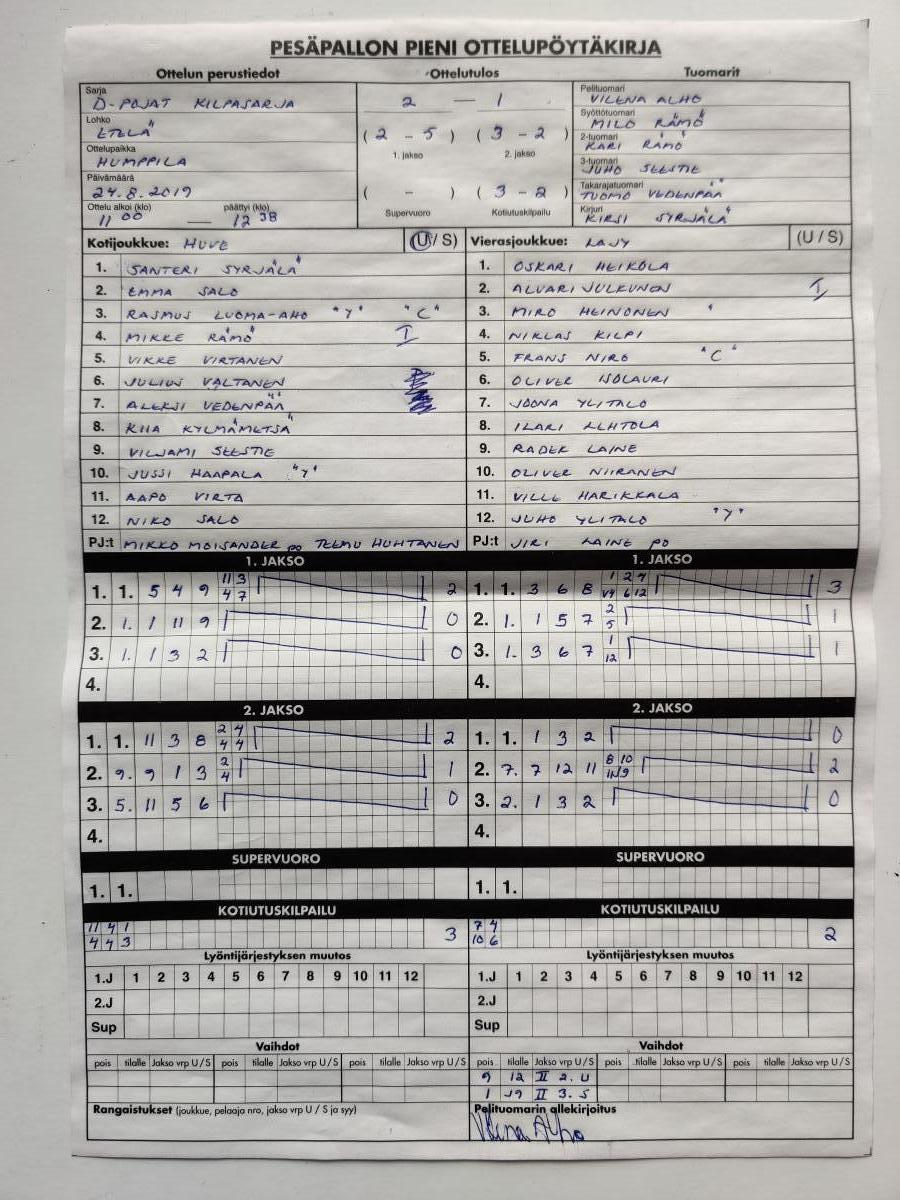 PESÄPALLON PIENI OTTELUPÖYTÄKIRJA
Ottelun perustiedot Ottelutulos Tuomarit
Sarja
D-POJAT KILPASARJA
Lohko
ETELÄ
Ottelupaikka
HUMPPILA
Päivämäärä
24.8.2019
Ottelu alkoi (klo) päättyi (klo)
11 00 — 12 38
2 — 1
( 2 - 5 ) ( 3 - 2 )
1. jakso 2. jakso
( - ) ( 3 - 2 )
Supervuoro Kotiutuskilpailu
Pelituomari
VILENA ALHO
Syöttötuomari
MILO RÄMÖ
2-tuomari
KARI RÄMÖ
3-tuomari
JUHO SEESTIE
Takarajatuomari
TUOMO VEDENPÄÄ
Kirjuri
KIRSI SYRJÄLÄ
Kotijoukkue: HUVE (U / S)
1. SANTERI SYRJÄLÄ
2. EMMA SALO
3. RASMUS LUOMA-AHO "Y" "C"
4. MIKKE RÄMÖ I
5. VIKKE VIRTANEN
6. JULIUS VALTANEN
7. ALEKSI VEDENPÄÄ
8. KIIA KYLMÄMETSÄ
9. VILJAMI SEESTIE
10. JUSSI HAAPALA "Y"
11. AAPO VIRTA
12. NIKO SALO
PJ:t MIKKO MOISANDER PO TEEMU HUHTANEN
Vierasjoukkue: LAJY (U / S)
1. OSKARI HEIKOLA
2. ALVARI JULKUNEN I
3. MIRO HEINONEN
4. NIKLAS KILPI
5. FRANS NIRO "C"
6. OLIVER ISOLAURI
7. JOONA YLITALO
8. ILARI LEHTOLA
9. RADEK LAINE
10. OLIVER NIIRANEN
11. VILLE HARIKKALA
12. JUHO YLITALO "Y"
PJ:t JIRI LAINE PO
1. JAKSO 1. JAKSO
1. 1. 5 4 9 11 3 2
4 7
2. 1. 1 11 9 0
3. 1. 1 3 2 0
4.
1. 1. 3 6 8 1 2 4 3
6 12
2. 1. 1 5 7 2 1
5
3. 1. 3 6 7 1 1
12
4.
2. JAKSO 2. JAKSO
1. 1. 11 3 8 2 4 2
4 4
2. 9. 9 1 3 2 1
4
3. 5. 11 5 6 0
4.
1. 1. 1 3 2 0
2. 7. 7 12 11 8 10 2
3. 2. 1 3 2 0
4.
SUPERVUORO SUPERVUORO
1. 1. 1. 1.
KOTIUTUSKILPAILU KOTIUTUSKILPAILU
11 4 1 3
4 4 3
7 4 2
10 6
Lyöntijärjestyksen muutos Lyöntijärjestyksen muutos
1.J 1 2 3 4 5 6 7 8 9 10 11 12 1.J 1 2 3 4 5 6 7 8 9 10 11 12
2.J 2.J
Sup Sup
Vaihdot Vaihdot
pois tilalle Jakso vrp U / S pois tilalle Jakso vrp U / S pois tilalle Jakso vrp U / S
pois tilalle Jakso vrp U / S pois tilalle Jakso vrp U / S pois tilalle Jakso vrp U / S
9 12 II 2. U
1 II 3. S
Rangaistukset (joukkue, pelaaja nro, jakso vrp U / S ja syy)
Pelituomarin allekirjoitus
Vilena Alho